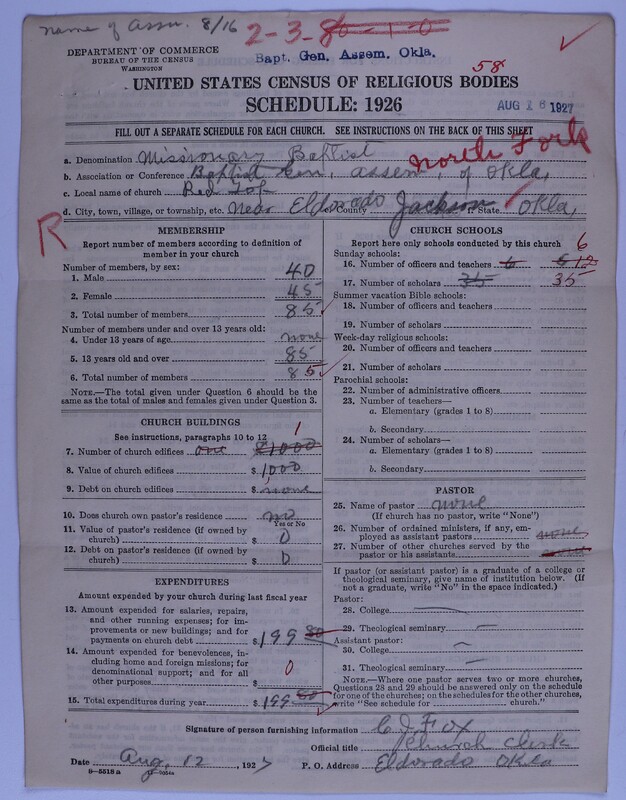 name of Assn. 8/16
2-3-80-1-0
Bapt. Gen. Assem. Okla.
58
DEPARTMENT OF COMMERCE
BUREAU OF THE CENSUS
WASHINGTON
UNITED STATES CENSUS OF RELIGIOUS BODIES
SCHEDULE: 1926
AUG 16 1927
FILL OUT A SEPARATE SCHEDULE FOR EACH CHURCH. SEE INSTRUCTIONS ON THE BACK OF THIS SHEET
North Fork
a. Denomination Missionary Baptist
b. Association or Conference Baptist Gen, assem, of Okla,
c. Local name of church Red Top
d. City, town, village, or township, etc. Near Eldorado County Jackson State Okla,
R
MEMBERSHIP
Report number of members according to definition of
member in your church
Number of members, by sex:
1. Male 40
2. Female 45
3. Total number of members 85
Number of members under and over 13 years old:
4. Under 13 years of age none
5. 13 years old and over 85
6. Total number of members 85
NOTE.—The total given under Question 6 should be the
same as the total of males and females given under Question 3.
CHURCH BUILDINGS
See instructions, paragraphs 10 to 12
7. Number of church edifices one $1000 1
8. Value of church edifices $1000
9. Debt on church edifices $ none
10. Does church own pastor's residence no
Yes or No
11. Value of pastor's residence (if owned by
church) $ 0
12. Debt on pastor's residence (if owned by
church) $ 0
EXPENDITURES
Amount expended by your church during last fiscal year
13. Amount expended for salaries, repairs,
and other running expenses; for im-
provements or new buildings; and for
payments on church debt $199 80
14. Amount expended for benevolences, in-
cluding home and foreign missions; for
denominational support; and for all
other purposes $ 0
15. Total expenditures during year $199 80
CHURCH SCHOOLS
Report here only schools conducted by this church
Sunday schools: 6
16. Number of officers and teachers 6
17. Number of scholars 35 35
Summer vacation Bible schools:
18. Number of officers and teachers
19. Number of scholars
Week-day religious schools:
20. Number of officers and teachers
21. Number of scholars
Parochial schools:
22. Number of administrative officers
23. Number of teachers—
a. Elementary (grades 1 to 8)
b. Secondary
24. Number of scholars—
a. Elementary (grades 1 to 8)
b. Secondary
PASTOR
25. Name of pastor none
(If church has no pastor, write "None")
26. Number of ordained ministers, if any, em-
ployed as assistant pastors none
27. Number of other churches served by the
pastor or his assistants none
If pastor (or assistant pastor) is a graduate of a college or
theological seminary, give name of institution below. (If
not a graduate, write "No" in the space indicated.)
Pastor:
28. College
29. Theological seminary
Assistant pastor:
30. College
31. Theological seminary
NOTE.—Where one pastor serves two or more churches,
Questions 28 and 29 should be answered only on the schedule
for one of the churches; on the schedules for the other churches,
write "See schedule for church."
Signature of person furnishing information C. J. Fox
Official title Church Clerk
Date Aug, 12, 1927 P. O. Address Eldorado Okla
8—5518 a